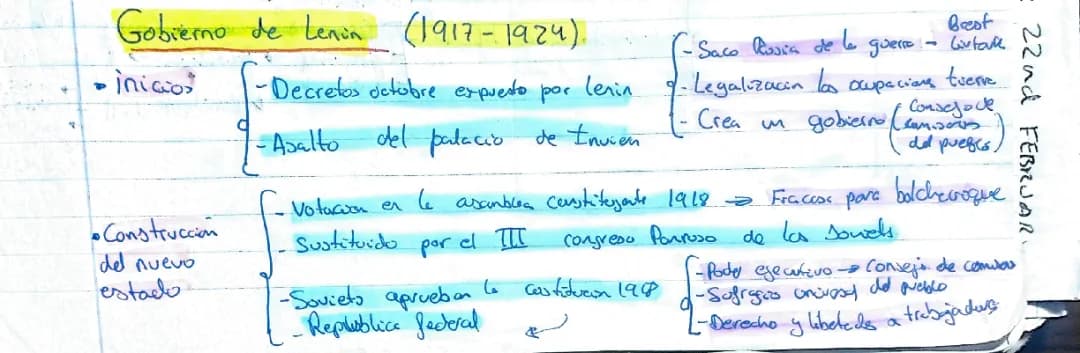 Gobierno de Lenin (1917-1924).
• inicios
- Decretos octubre expuesto por lenin
- Asalto del palacio de Invien
- Saco Rusia de la guerra - Brest
- Legalización las ocupacions tierra
- Crea un gobierno (Consejo de comisarios del pueblos)
22nd FEBRUAR.
• Construcción del nuevo estado
- Votacion en la asamblea constituyente 1918 → Fracaso para bolchevique
- Sustituido por el III congreso Panruso de los soviets
- Soviets aprueban la constitucion 1918
- Republica federal
- Poder ejecutivo → consejo de comisarios del pueblo
- Sufragio universal
- Derecho y libertades a trabajadores